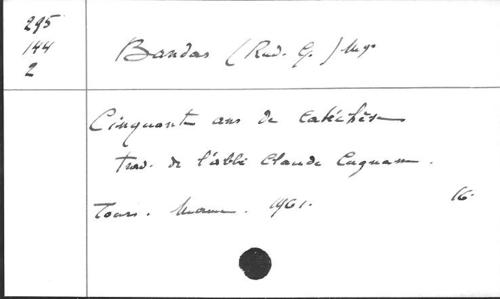 295
144
2
Bandas (Rud. G.) Mgr
Cinquante ans de catéchèse
trad. de l'abbé Claude Cagnam.
Tours. Mame. 1961. 16.